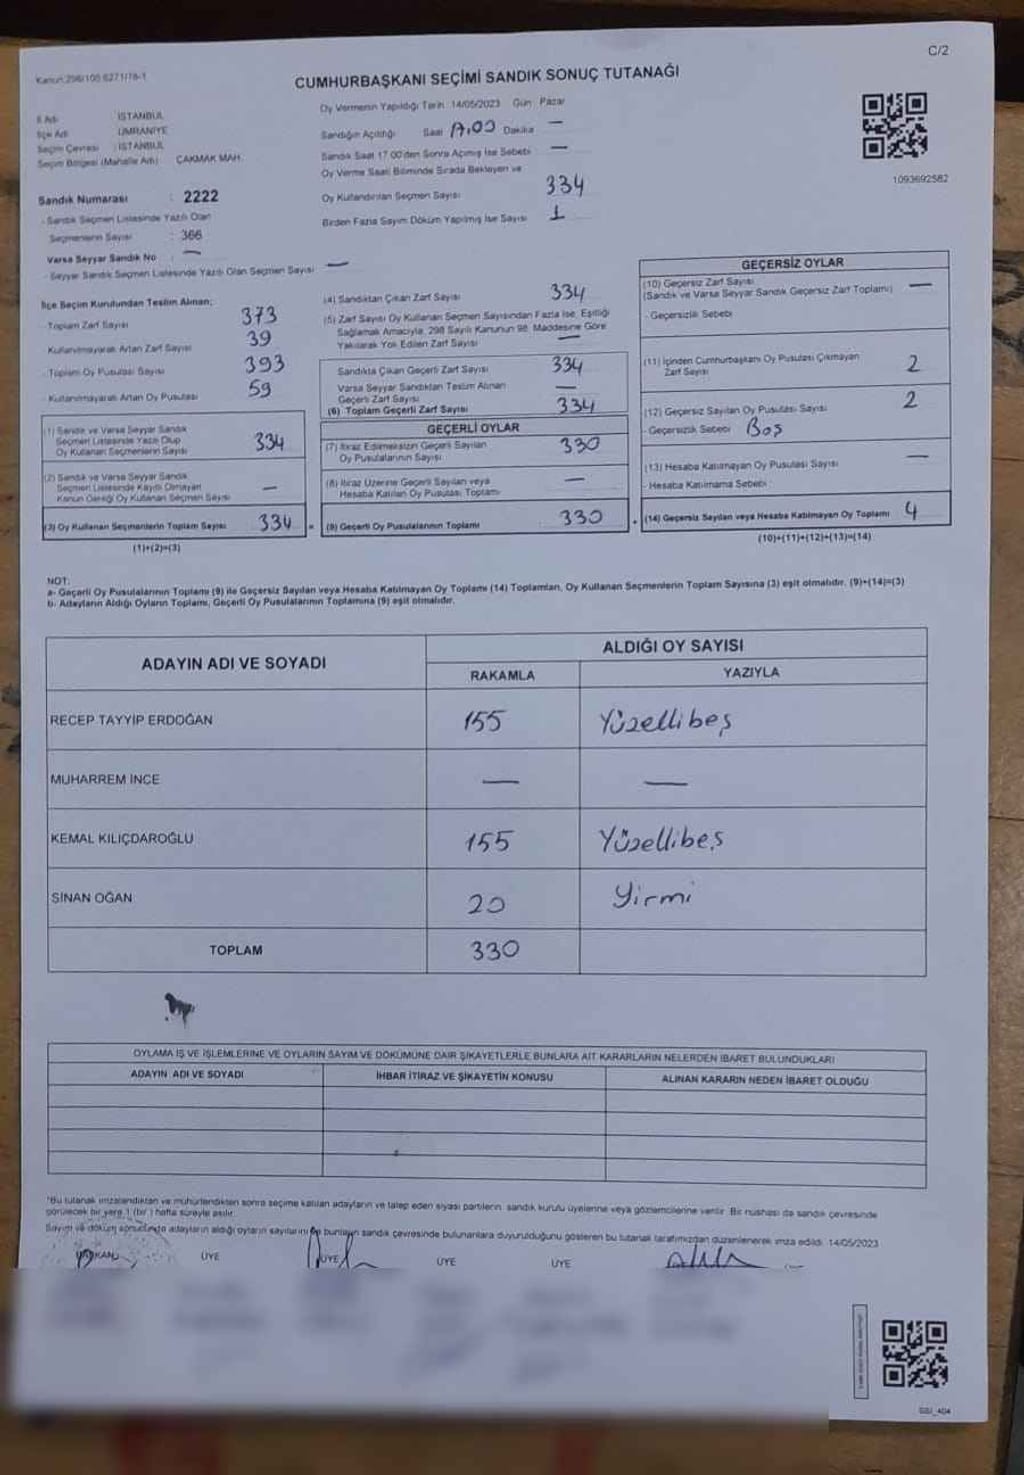 C/2
Kanun:298/105 6271/18-1
CUMHURBAŞKANI SEÇİMİ SANDIK SONUÇ TUTANAĞI
İl Adı : İSTANBUL
İlçe Adı : ÜMRANİYE
Seçim Çevresi : İSTANBUL
Seçim Bölgesi (Mahalle Adı) : ÇAKMAK MAH.
Sandık Numarası : 2222
- Sandık Seçmen Listesinde Yazılı Olan
Seçmenlerin Sayısı : 366
Varsa Seyyar Sandık No : —
- Seyyar Sandık Seçmen Listesinde Yazılı Olan Seçmen Sayısı : —
Oy Vermenin Yapıldığı Tarih : 14/05/2023 Gün : Pazar
Sandığın Açıldığı Saat 17.00 Dakika —
Sandık Saat 17:00'den Sonra Açılmış İse Sebebi —
Oy Verme Saati Bitiminde Sırada Bekleyen ve
Oy Kullandırılan Seçmen Sayısı 334
Birden Fazla Sayım Döküm Yapılmış İse Sayısı 1
1093692582
İlçe Seçim Kurulundan Teslim Alınan;
- Toplam Zarf Sayısı 373
- Kullanılmayarak Artan Zarf Sayısı 39
- Toplam Oy Pusulası Sayısı 393
- Kullanılmayarak Artan Oy Pusulası 59
(1) Sandık ve Varsa Seyyar Sandık
Seçmen Listesinde Yazılı Olup
Oy Kullanan Seçmenlerin Sayısı 334
(2) Sandık ve Varsa Seyyar Sandık
Seçmen Listesinde Kayıtlı Olmayan
Kanun Gereği Oy Kullanan Seçmen Sayısı —
(3) Oy Kullanan Seçmenlerin Toplam Sayısı 334 =
(1)+(2)=(3)
(4) Sandıktan Çıkan Zarf Sayısı 334
(5) Zarf Sayısı Oy Kullanan Seçmen Sayısından Fazla İse, Eşitliği
Sağlamak Amacıyla, 298 Sayılı Kanunun 98. Maddesine Göre
Yakılarak Yok Edilen Zarf Sayısı —
Sandıkta Çıkan Geçerli Zarf Sayısı 334
Varsa Seyyar Sandıktan Teslim Alınan
Geçerli Zarf Sayısı —
(6) Toplam Geçerli Zarf Sayısı 334
GEÇERLİ OYLAR
(7) İtiraz Edilmeksizin Geçerli Sayılan
Oy Pusulalarının Sayısı 330
(8) İtiraz Üzerine Geçerli Sayılan veya
Hesaba Katılan Oy Pusulası Toplamı —
(9) Geçerli Oy Pusulalarının Toplamı 330 +
GEÇERSİZ OYLAR
(10) Geçersiz Zarf Sayısı —
(Sandık ve Varsa Seyyar Sandık Geçersiz Zarf Toplamı)
- Geçersizlik Sebebi
(11) İçinden Cumhurbaşkanı Oy Pusulası Çıkmayan
Zarf Sayısı 2
(12) Geçersiz Sayılan Oy Pusulası Sayısı 2
- Geçersizlik Sebebi Boş
(13) Hesaba Katılmayan Oy Pusulası Sayısı —
- Hesaba Katılmama Sebebi :
(14) Geçersiz Sayılan veya Hesaba Katılmayan Oy Toplamı 4
(10)+(11)+(12)+(13)=(14)
NOT:
a- Geçerli Oy Pusulalarının Toplamı (9) ile Geçersiz Sayılan veya Hesaba Katılmayan Oy Toplamı (14) Toplamları, Oy Kullanan Seçmenlerin Toplam Sayısına (3) eşit olmalıdır. (9)+(14)=(3)
b- Adayların Aldığı Oyların Toplamı, Geçerli Oy Pusulalarının Toplamına (9) eşit olmalıdır.
ADAYIN ADI VE SOYADI
ALDIĞI OY SAYISI
RAKAMLA YAZIYLA
RECEP TAYYİP ERDOĞAN 155 Yüzellibeş
MUHARREM İNCE — —
KEMAL KILIÇDAROĞLU 155 Yüzellibeş
SİNAN OĞAN 20 Yirmi
TOPLAM 330
OYLAMA İŞ VE İŞLEMLERİNE VE OYLARIN SAYIM VE DÖKÜMÜNE DAİR ŞİKAYETLERLE BUNLARA AİT KARARLARIN NELERDEN İBARET BULUNDUKLARI
ADAYIN ADI VE SOYADI İHBAR İTİRAZ VE ŞİKAYETİN KONUSU ALINAN KARARIN NEDEN İBARET OLDUĞU
*Bu tutanak imzalandıktan ve mühürlendikten sonra seçime katılan adayların ve talep eden siyasi partilerin sandık kurulu üyelerine veya gözlemcilerine verilir. Bir nüshası da sandık çevresinde
görülecek bir yere 1 (bir) hafta süreyle asılır.
Sayım ve döküm sonucunda adayların aldığı oyların sayılarını ve bunların sandık çevresinde bulunanlara duyurulduğunu gösteren bu tutanak tarafımızdan düzenlenerek imza edildi. 14/05/2023
BAŞKAN ÜYE ÜYE ÜYE ÜYE